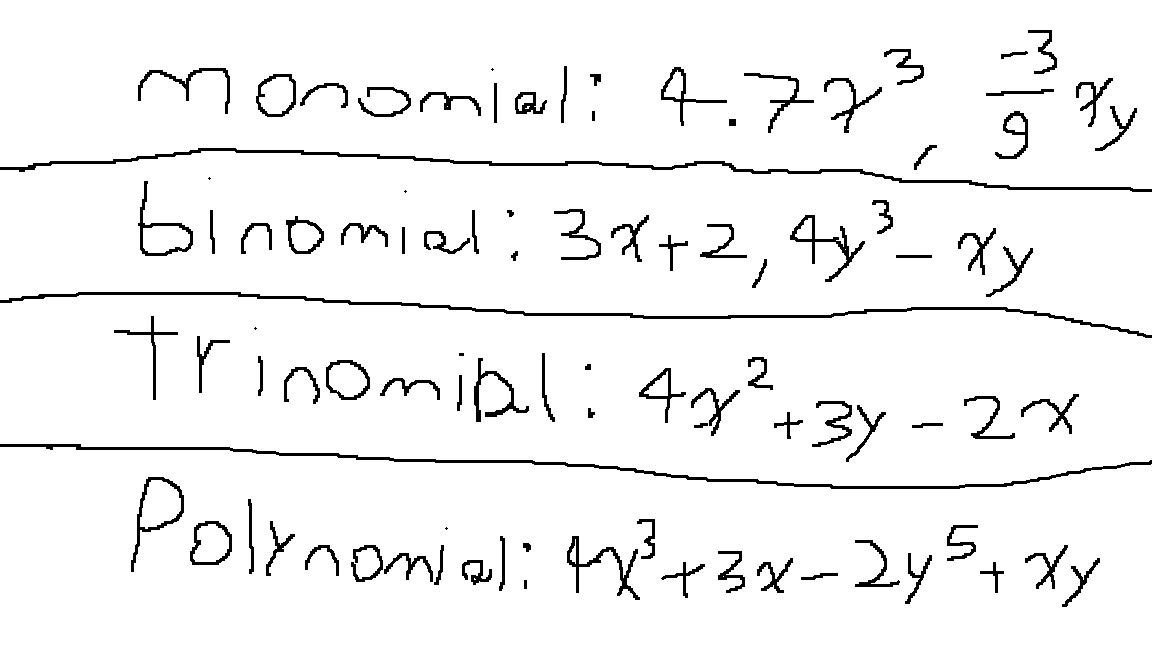 Monomial: 4.7x³, -3/9 xy
binomial: 3x+2, 4y³ - xy
Trinomial: 4x² + 3y - 2x
Polynomial: 4x³ + 3x - 2y⁵ + xy